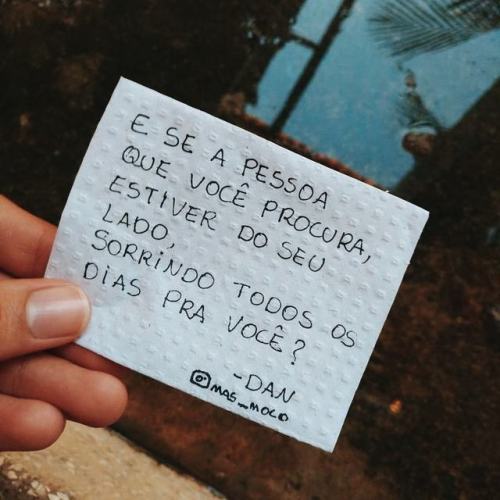 E SE A PESSOA
QUE VOCÊ PROCURA,
ESTIVER DO SEU
LADO,
SORRINDO TODOS OS
DIAS PRA VOCÊ?
-DAN
MAS_MOÇO